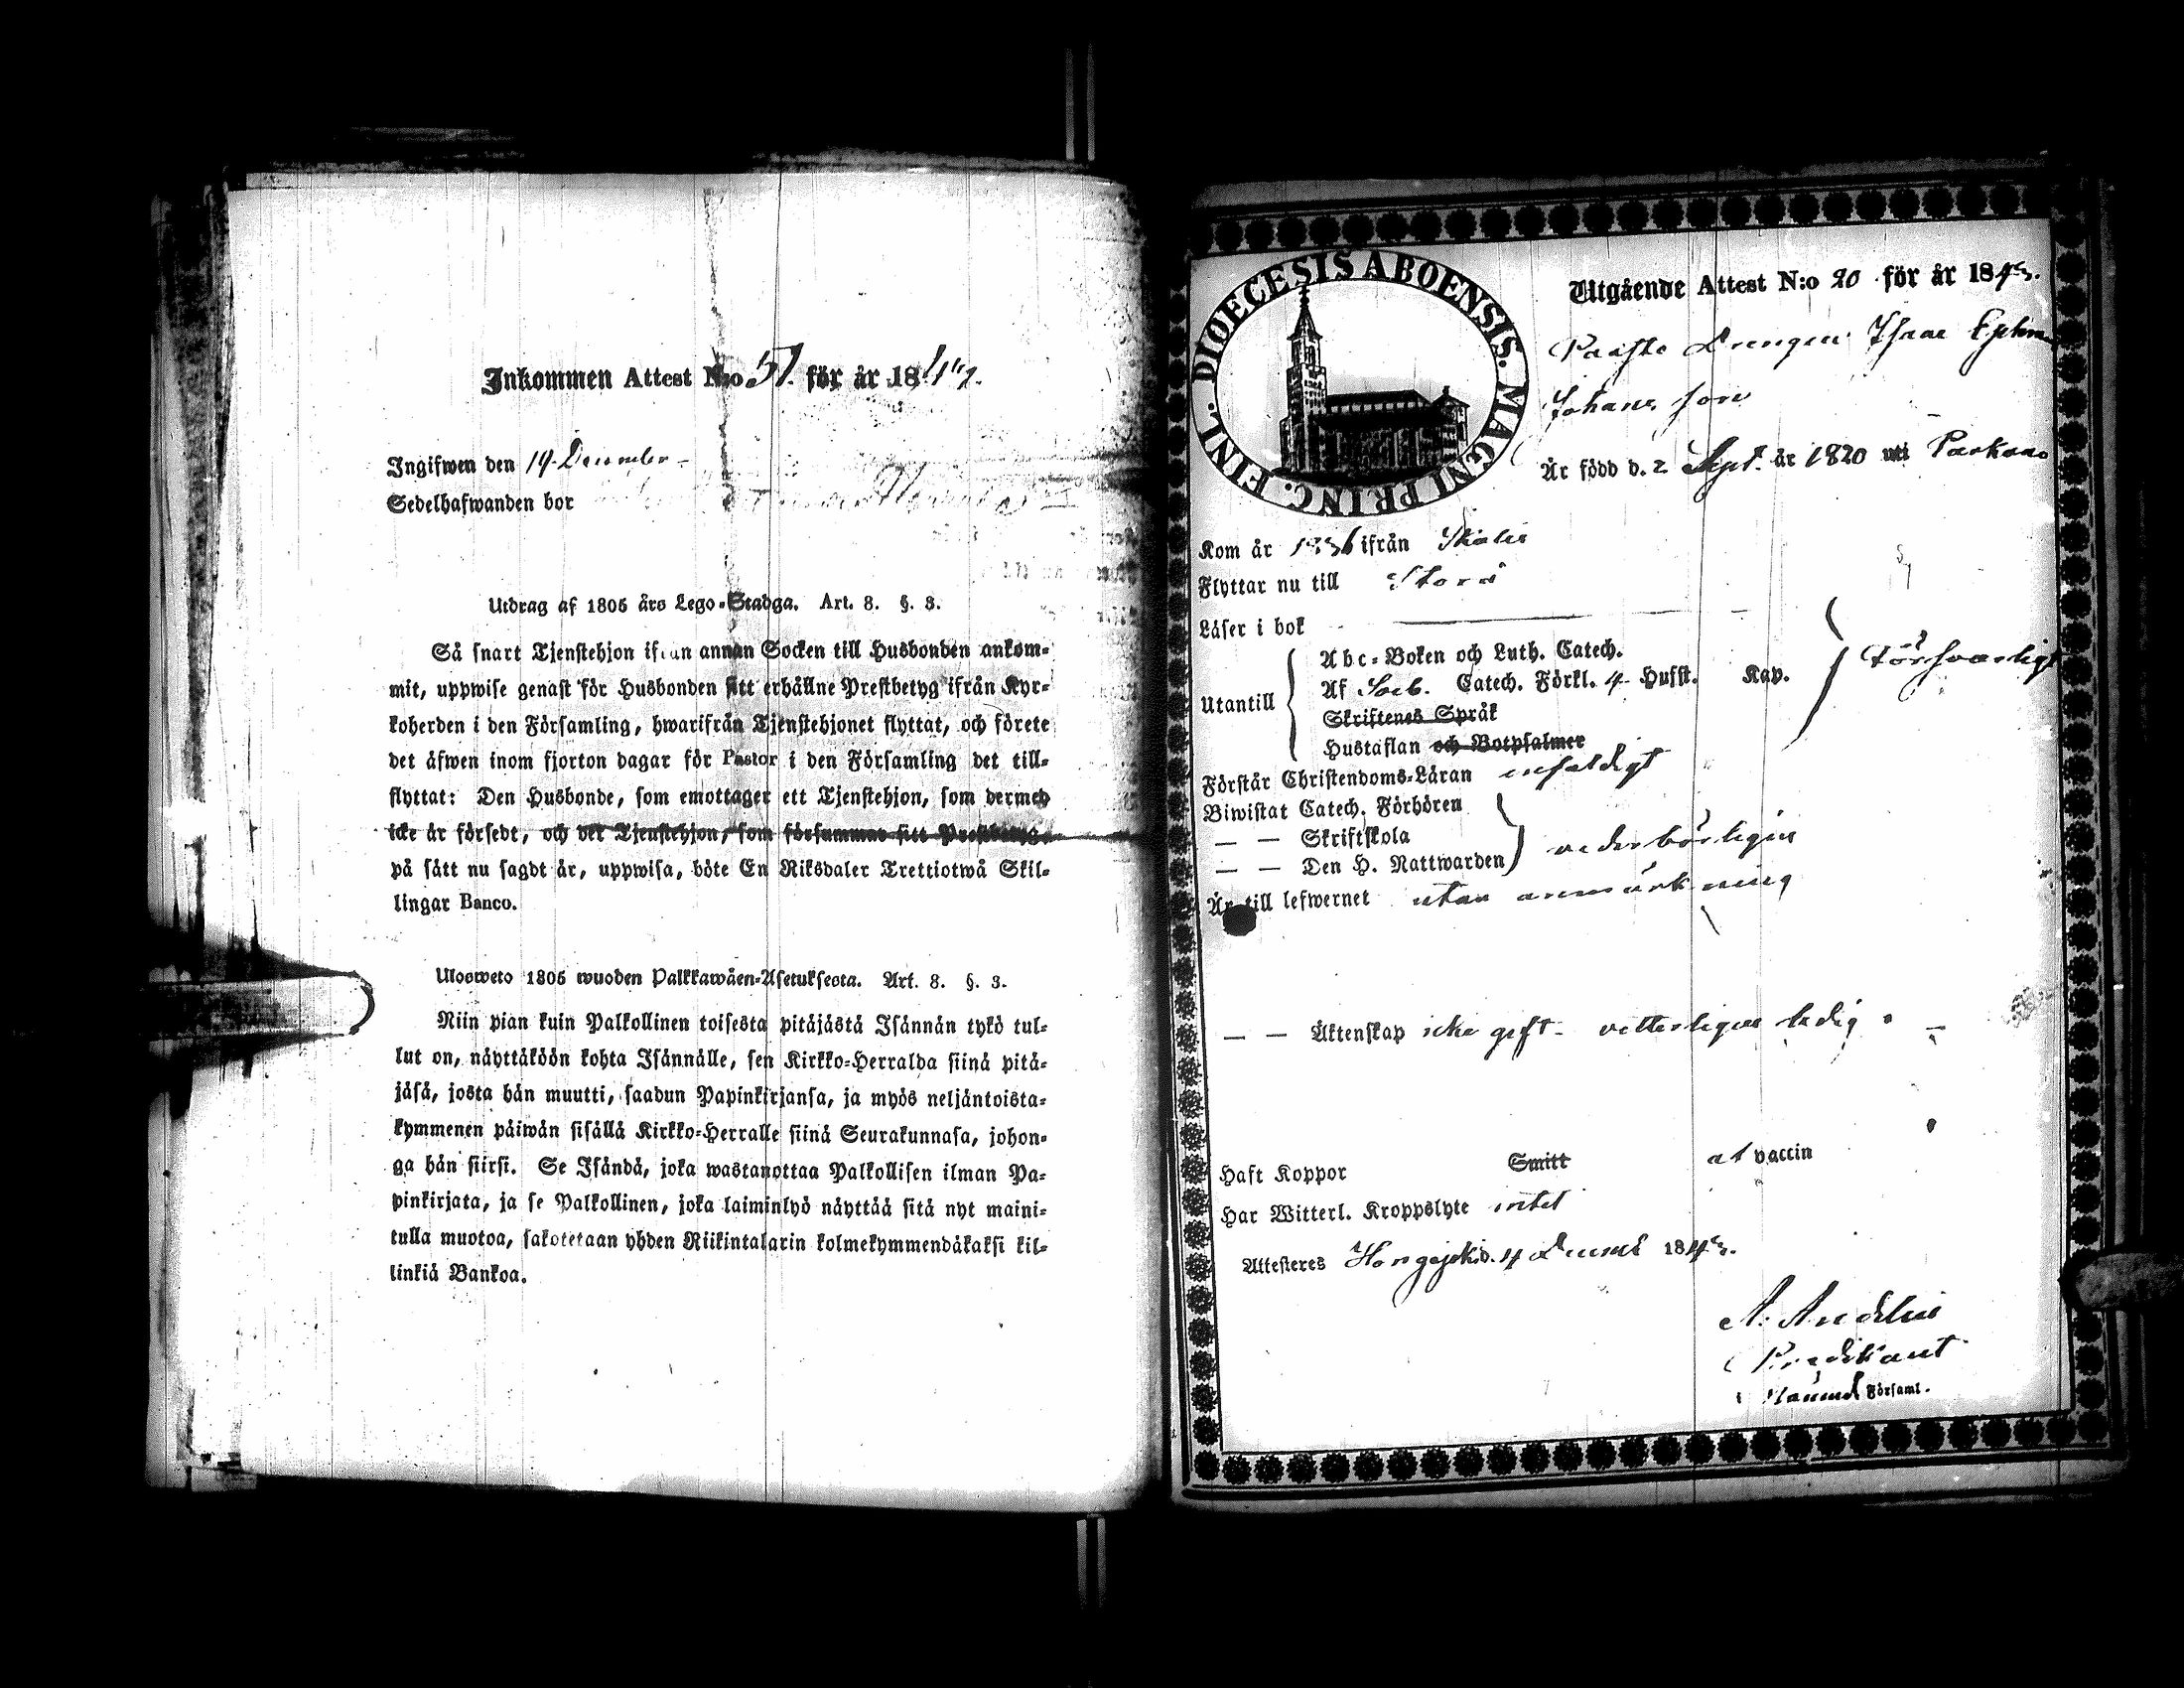 Inkommen Attest N:o 51. för år 18
Ingifwen den 19 December
Sedelhafwanden bor
Utdrag af 1805 års Lego-Stadga. Art. 8. §. 3.
Så snart Tjenstehjon ifrån annan Socken till Husbonden ankom-
mit, uppwise genast för Husbonden sitt erhållne Prestbetyg ifrån Kyr-
koherden i den Församling, hwarifrån Tjenstehjonet flyttat, och förete
det äfwen inom fjorton dagar för Pastor i den Församling det till-
flyttat: Den Husbonde, som emottager ett Tjenstehjon, som dermed
icke är försedt, och det Tjenstehjon, som försummar sitt Prestbetyg,
på sätt nu sagdt är, uppwisa, böte En Riksdaler Trettiotwå Skil-
lingar Banco.
Ulosweto 1805 wuoden Palkkawäen-Asetuksesta. Art. 8. §. 3.
Niin pian kuin Palkollinen toisesta pitäjästä Isännän tykö tul-
lut on, näyttäköön kohta Isännälle, sen Kirkko-Herralda siinä pitä-
jäsä, josta hän muutti, saadun Papinkirjansa, ja myös neljäntoista-
kymmenen päiwän sisällä Kirkko-Herralle siinä Seurakunnasa, johon-
ga hän siirsi. Se Isändä, joka wastanottaa Palkollisen ilman Pa-
pinkirjata, ja se Palkollinen, joka laiminlyö näyttää sitä nyt maini-
tulla muotoa, sakotetaan yhden Riikintalarin kolmekymmendäkaksi kil-
linkiä Bankoa.
DIOECESIS ABOENSIS. MAGNI PRINC. FINL.
Utgående Attest N:o 20 för år 18
Drengen Isaac
Johans son
Är född d. 2 Sept. år 1820 uti Parkano
Kom år 1836 ifrån
Flyttar nu till Storå
Läser i bok
Utantill
Abc-Boken och Luth. Catech.
Af Sveb. Catech. Förkl. 4 Husst. Kap.
Skriftenes Språk
Hustaflan och Botpsalmer
försvarligt
Förstår Christendoms-Läran enfaldigt
Biwistat Catech. Förhören
— — Skriftskola
— — Den H. Nattwarden
vederbörligen
Är till lefwernet utan anmärkning
— — Äktenskap icke gift - vetterligen ledig
Haft Koppor Smitt af vaccin
Har Witterl. Kroppslyte intet
Attesteres d. 4 18
Predikant
Församl.